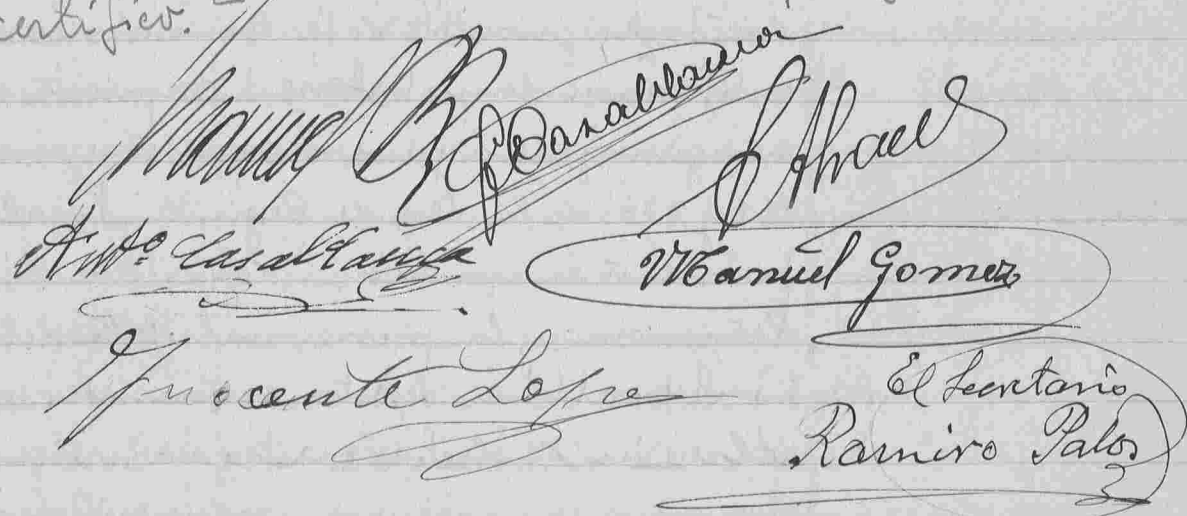 certifico.
Manuel B
Casablanca
Antº Casablanca
Manuel Gomez
Inocente Lopez
El Secretario
Ramiro Palos